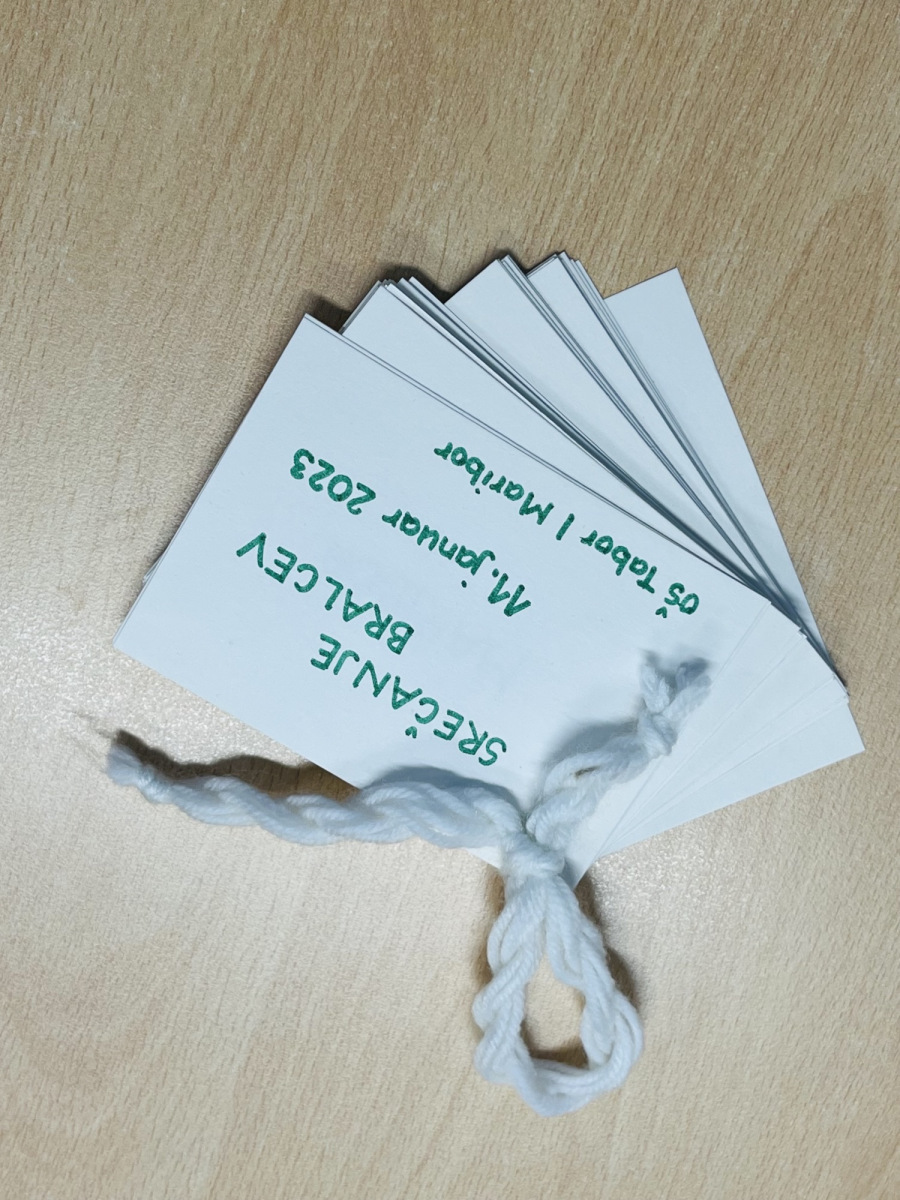 SREČANJE
BRALCEV
11. januar 2023
OŠ Tabor I Maribor